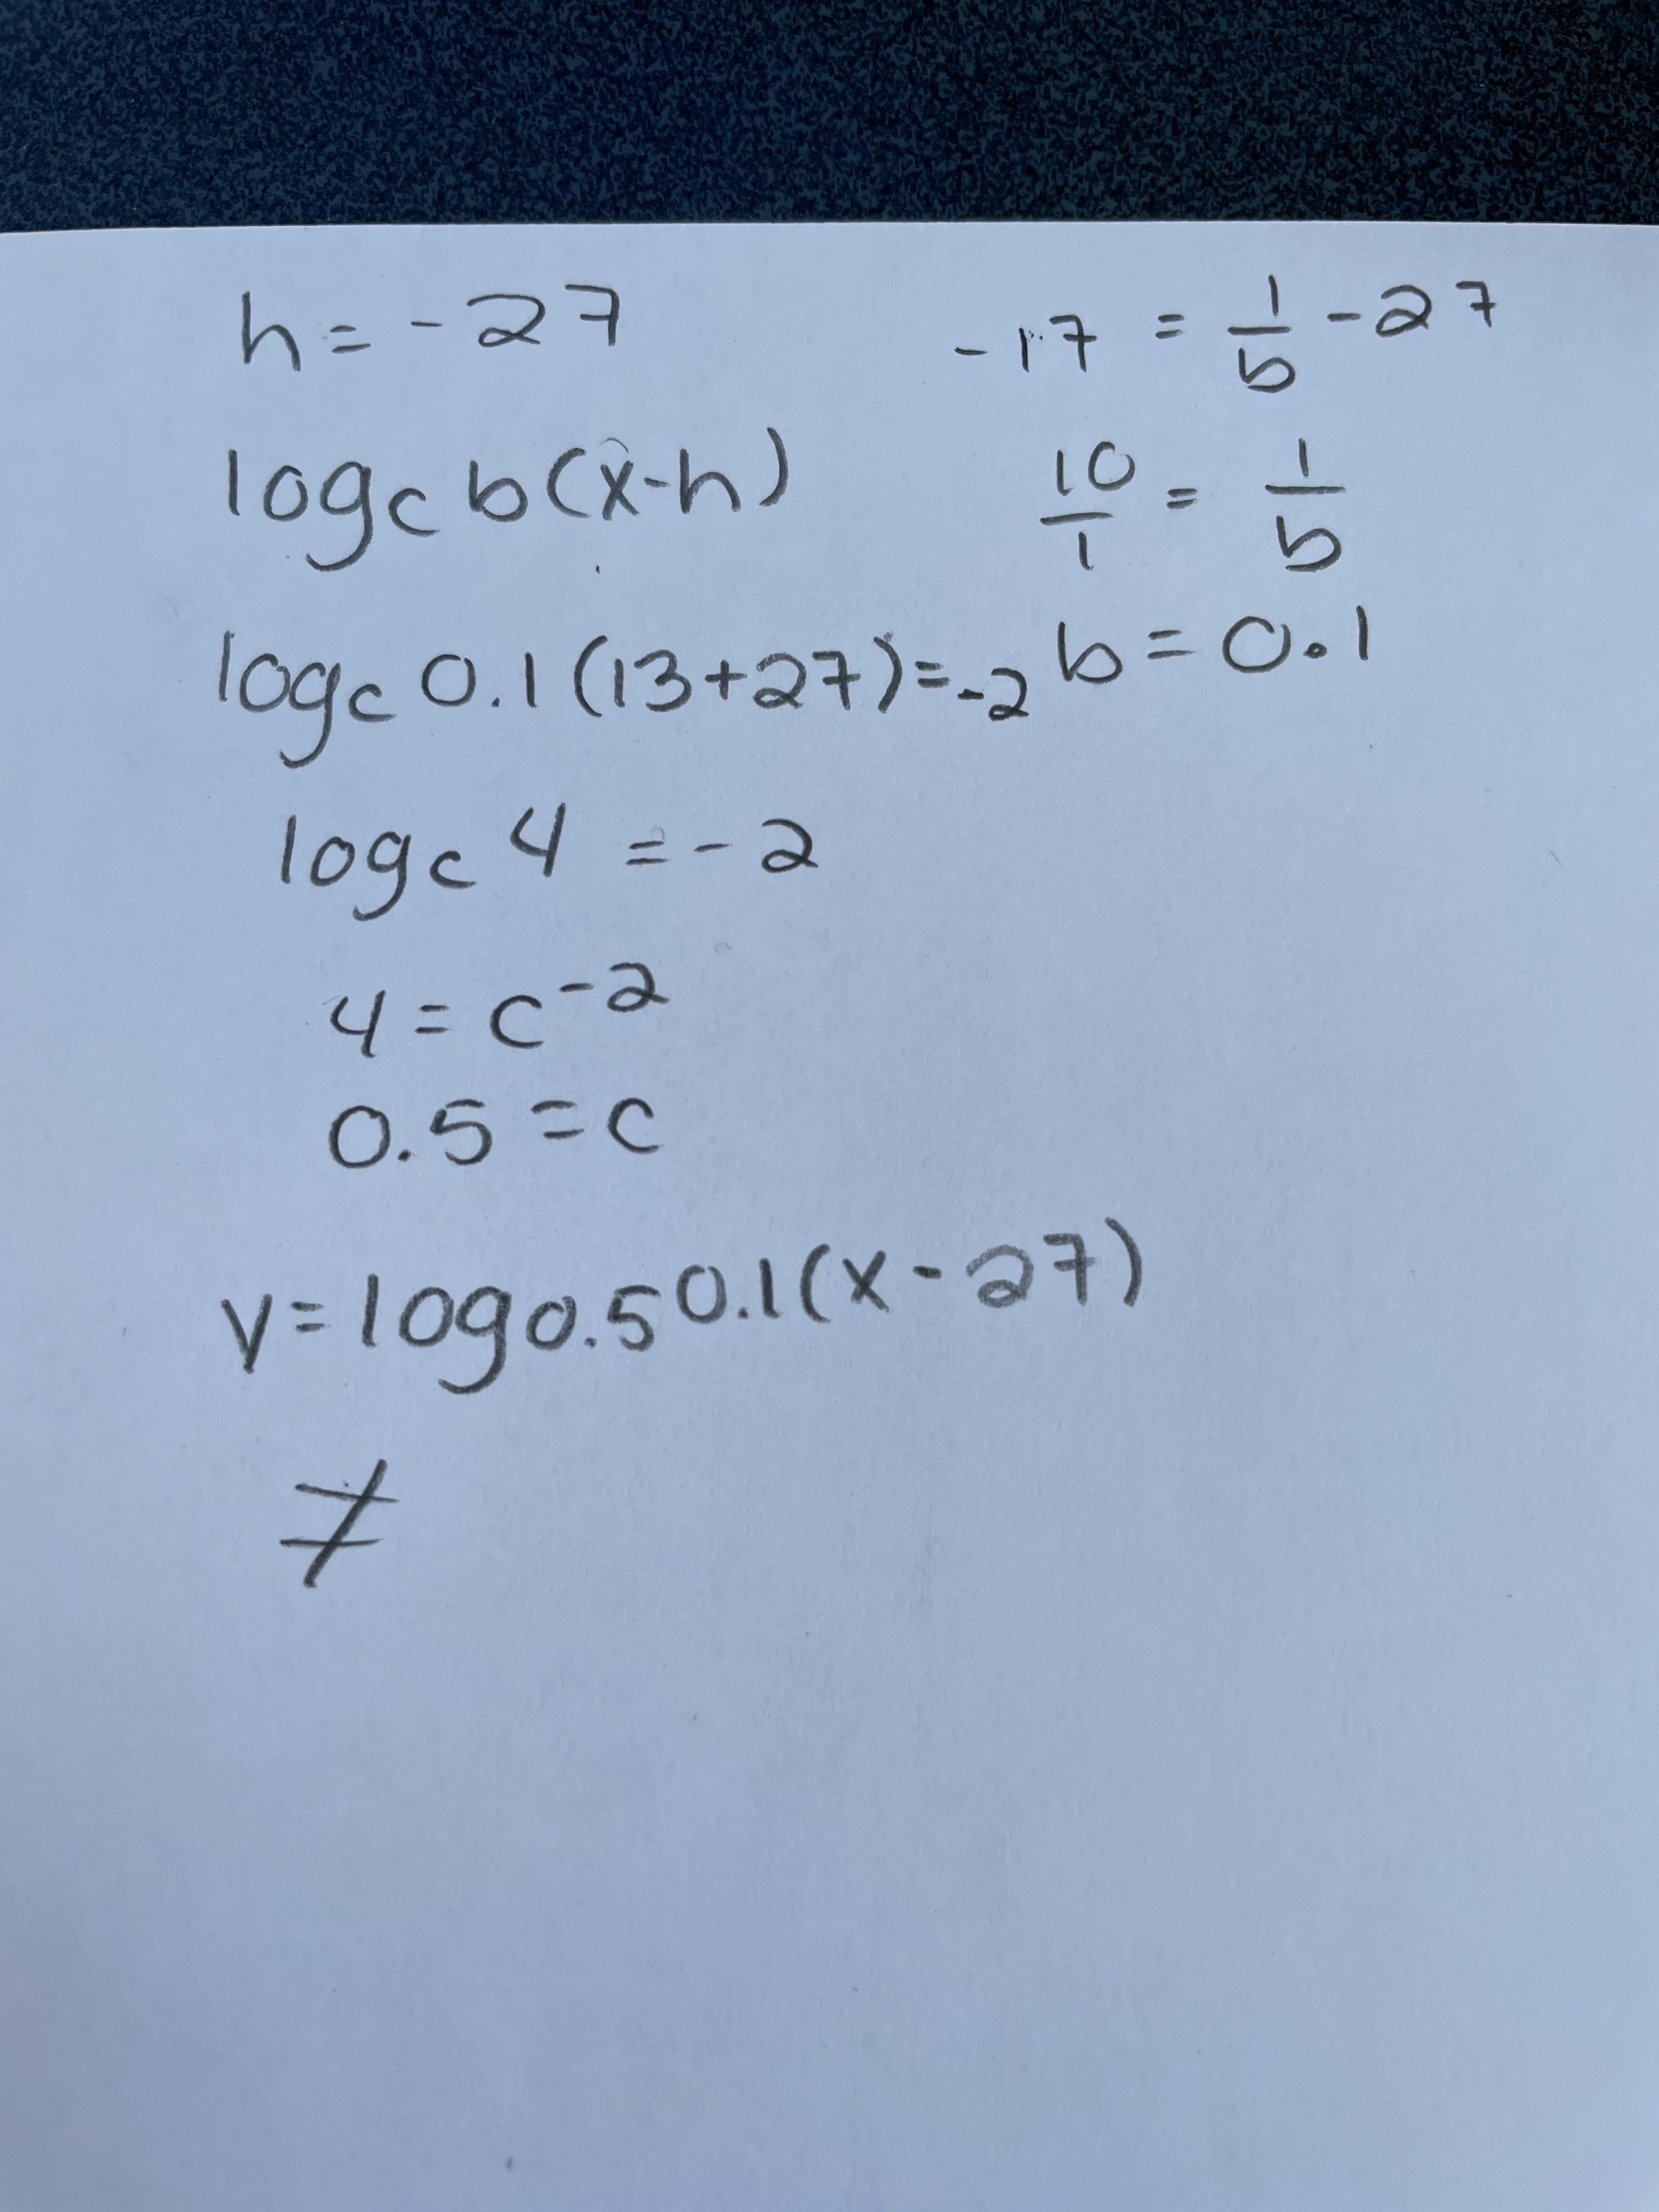 h = -27
-17 = 1/b - 27
logc b(x-h)
10/1 = 1/b
logc 0.1(13+27)=-2
b = 0.1
logc 4 = -2
4 = c^-2
0.5 = c
y = log0.5 0.1(x-27)
≠